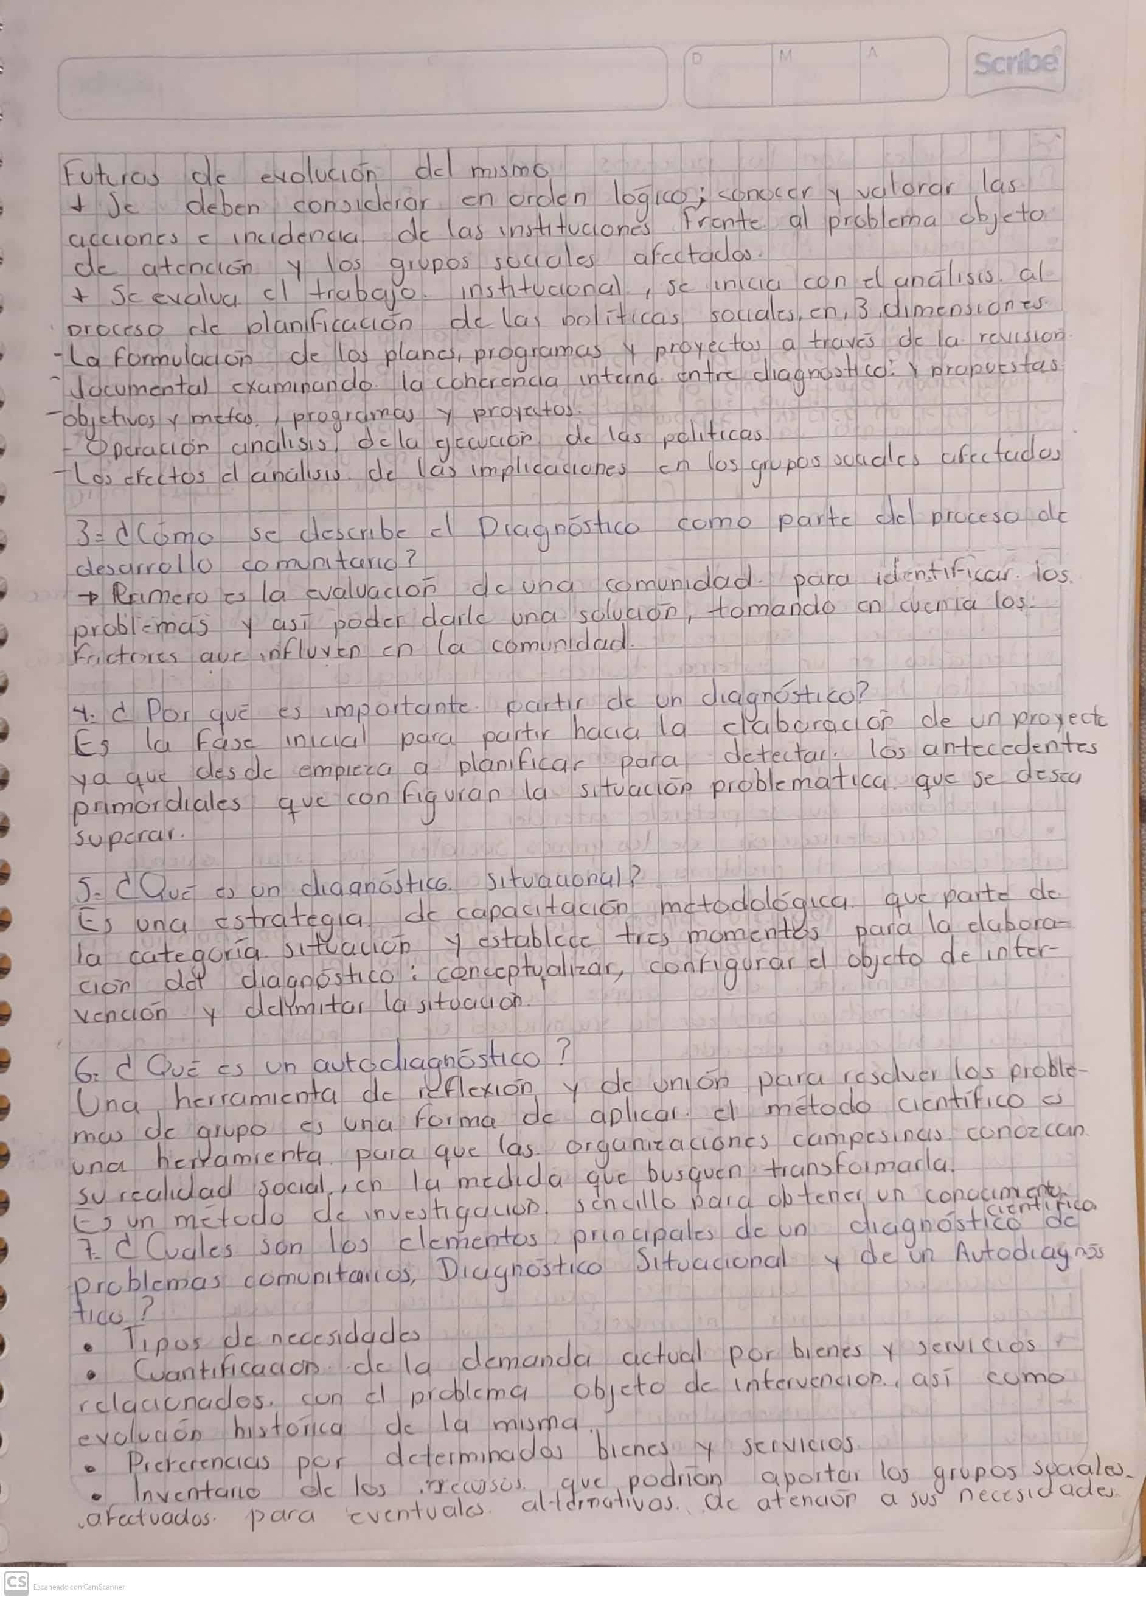 D M A Scribe
Futuras de evolución del mismo
+ Se deben considerar en orden lógico; conocer y valorar las
acciones e incidencia de las instituciones frente al problema objeto
de atención y los grupos sociales afectados.
+ Se evalua el trabajo institucional, se inicia con el análisis al
proceso de planificación de las politicas sociales, en, 3 dimensiones
-La formulación de los planes, programas y proyectos a través de la revision
-documental examinando la coherencia interna entre diagnóstico: y propuestas
-objetivos y metas, programas y proyectos.
- Operación análisis, de la ejecución de las políticas
-Los efectos el análisis de las implicaciones en los grupos sociales afectados
3= ¿Cómo se describe el Diagnóstico como parte del proceso de
desarrollo comunitario?
→ Primero es la evaluación de una comunidad para identificar los
problemas y así poder darle una solución, tomando en cuenta los
frictores que influyen en la comunidad.
4. ¿Por qué es importante partir de un diagnóstico?
Es la fase inicial para partir hacia la elaboración de un proyecto
ya que desde empieza a planificar para detectar los antecedentes
primordiales que configuran la situación problemática que se desea
superar.
5. ¿Qué es un diagnóstico situacional?
Es una estrategia de capacitación metodológica que parte de
la categoría situación y establece tres momentos para la elabora-
ción del diagnóstico: conceptualizar, configurar el objeto de inter-
vención y delimitar la situación.
6. ¿Qué es un autodiagnóstico?
Una herramienta de reflexión y de unión para resolver los proble-
mas de grupo es una forma de aplicar el método científico es
una herramienta para que las organizaciones campesinas conozcan
su realidad social, en la medida que busquen transformarla.
Es un método de investigación sencillo para obtener un conocimiento
científico
7. ¿Cuales son los elementos principales de un diagnóstico de
problemas comunitarios, Diagnóstico Situacional y de un Autodiagnós
tico?
• Tipos de necesidades
• Cuantificación de la demanda actual por bienes y servicios
relacionados con el problema objeto de intervención, así como
evolución histórica de la misma.
• Preferencias por determinados bienes y servicios
• Inventario de los recursos que podrían aportar los grupos sociales
afectuados para eventuales alternativas de atención a sus necesidades
CS Escaneado con CamScanner